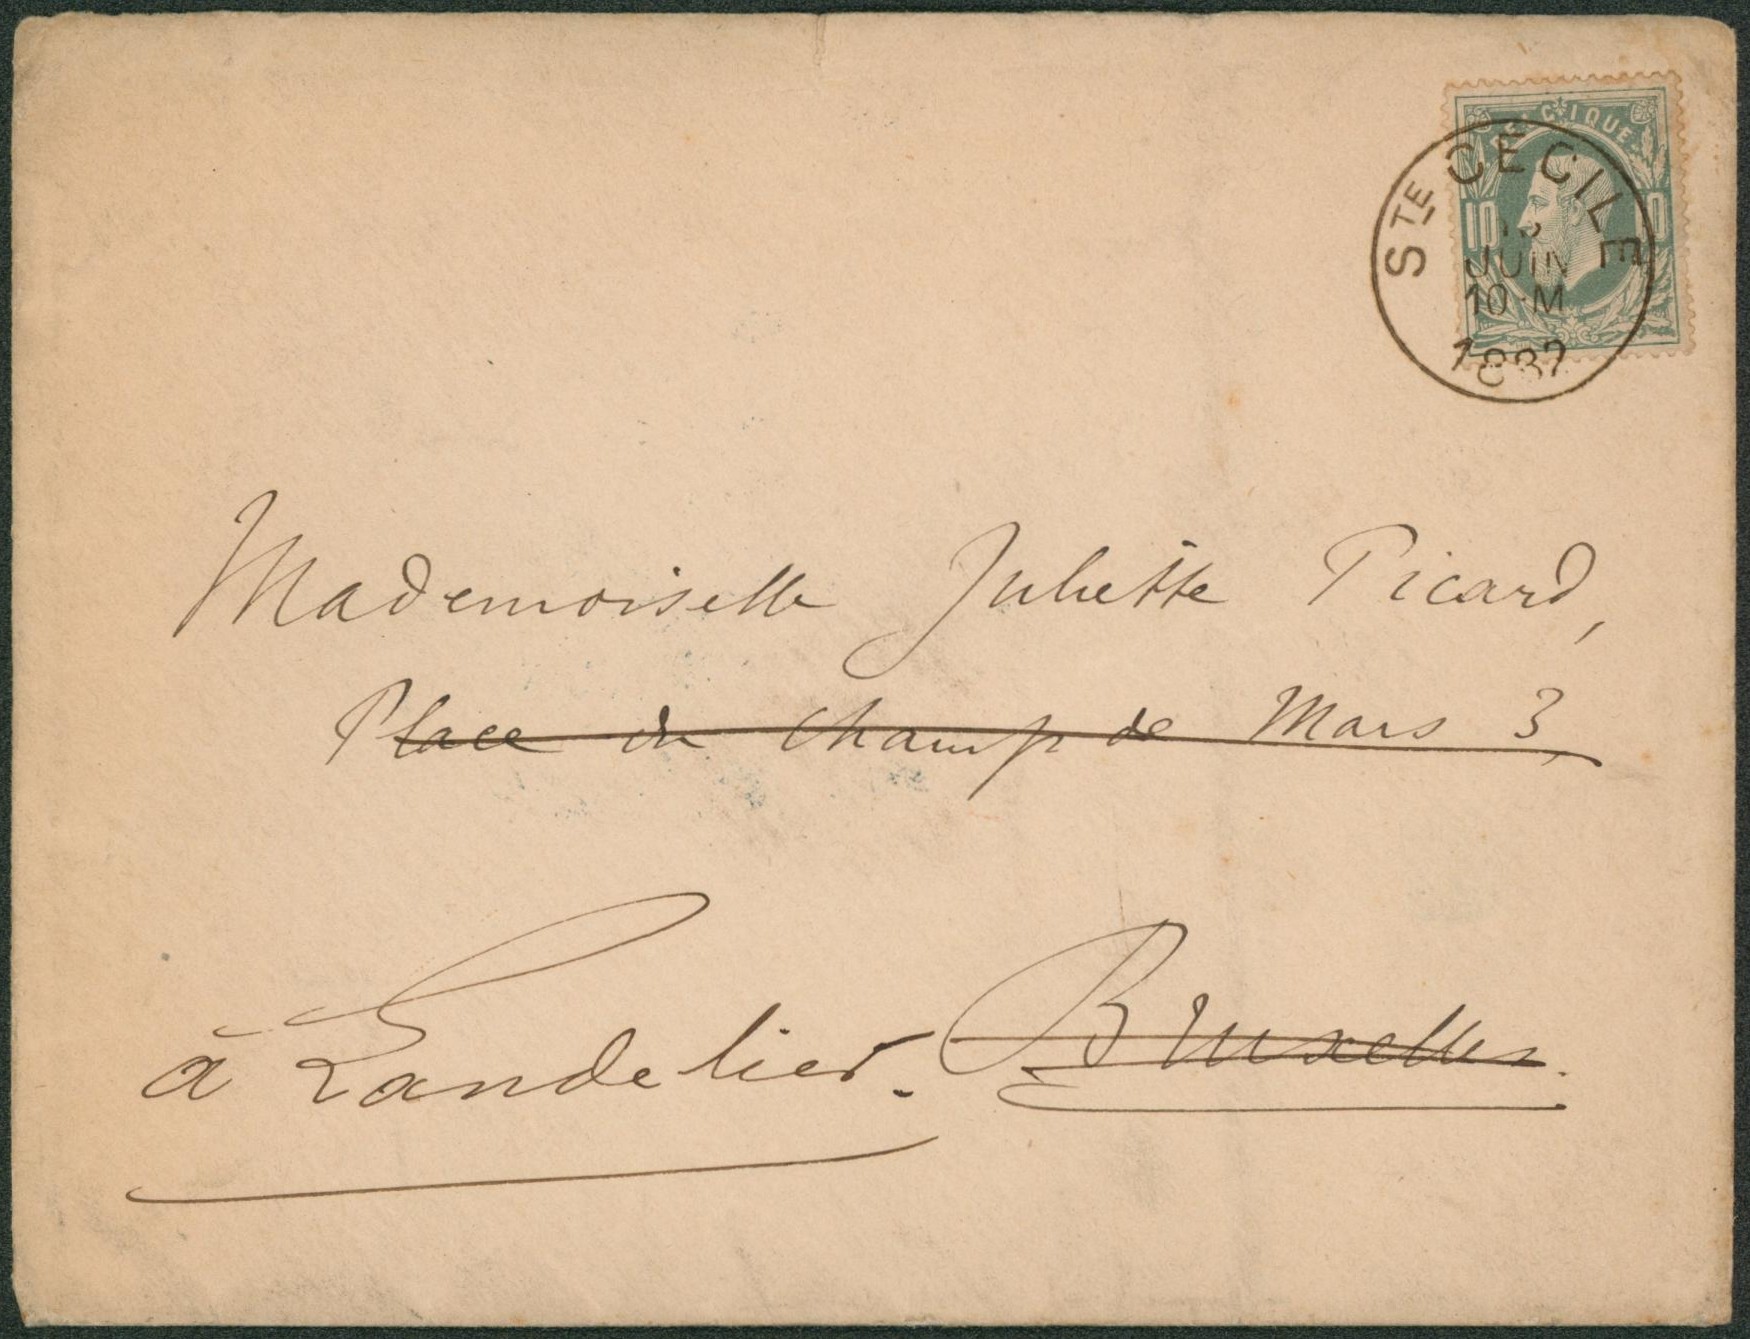 BELGIQUE
10 10
STE CÉCILE
JUIN
10 M
1882
Mademoiselle Juliette Picard,
Place du Champ de Mars 3,
à Landelier. Bruxelles.